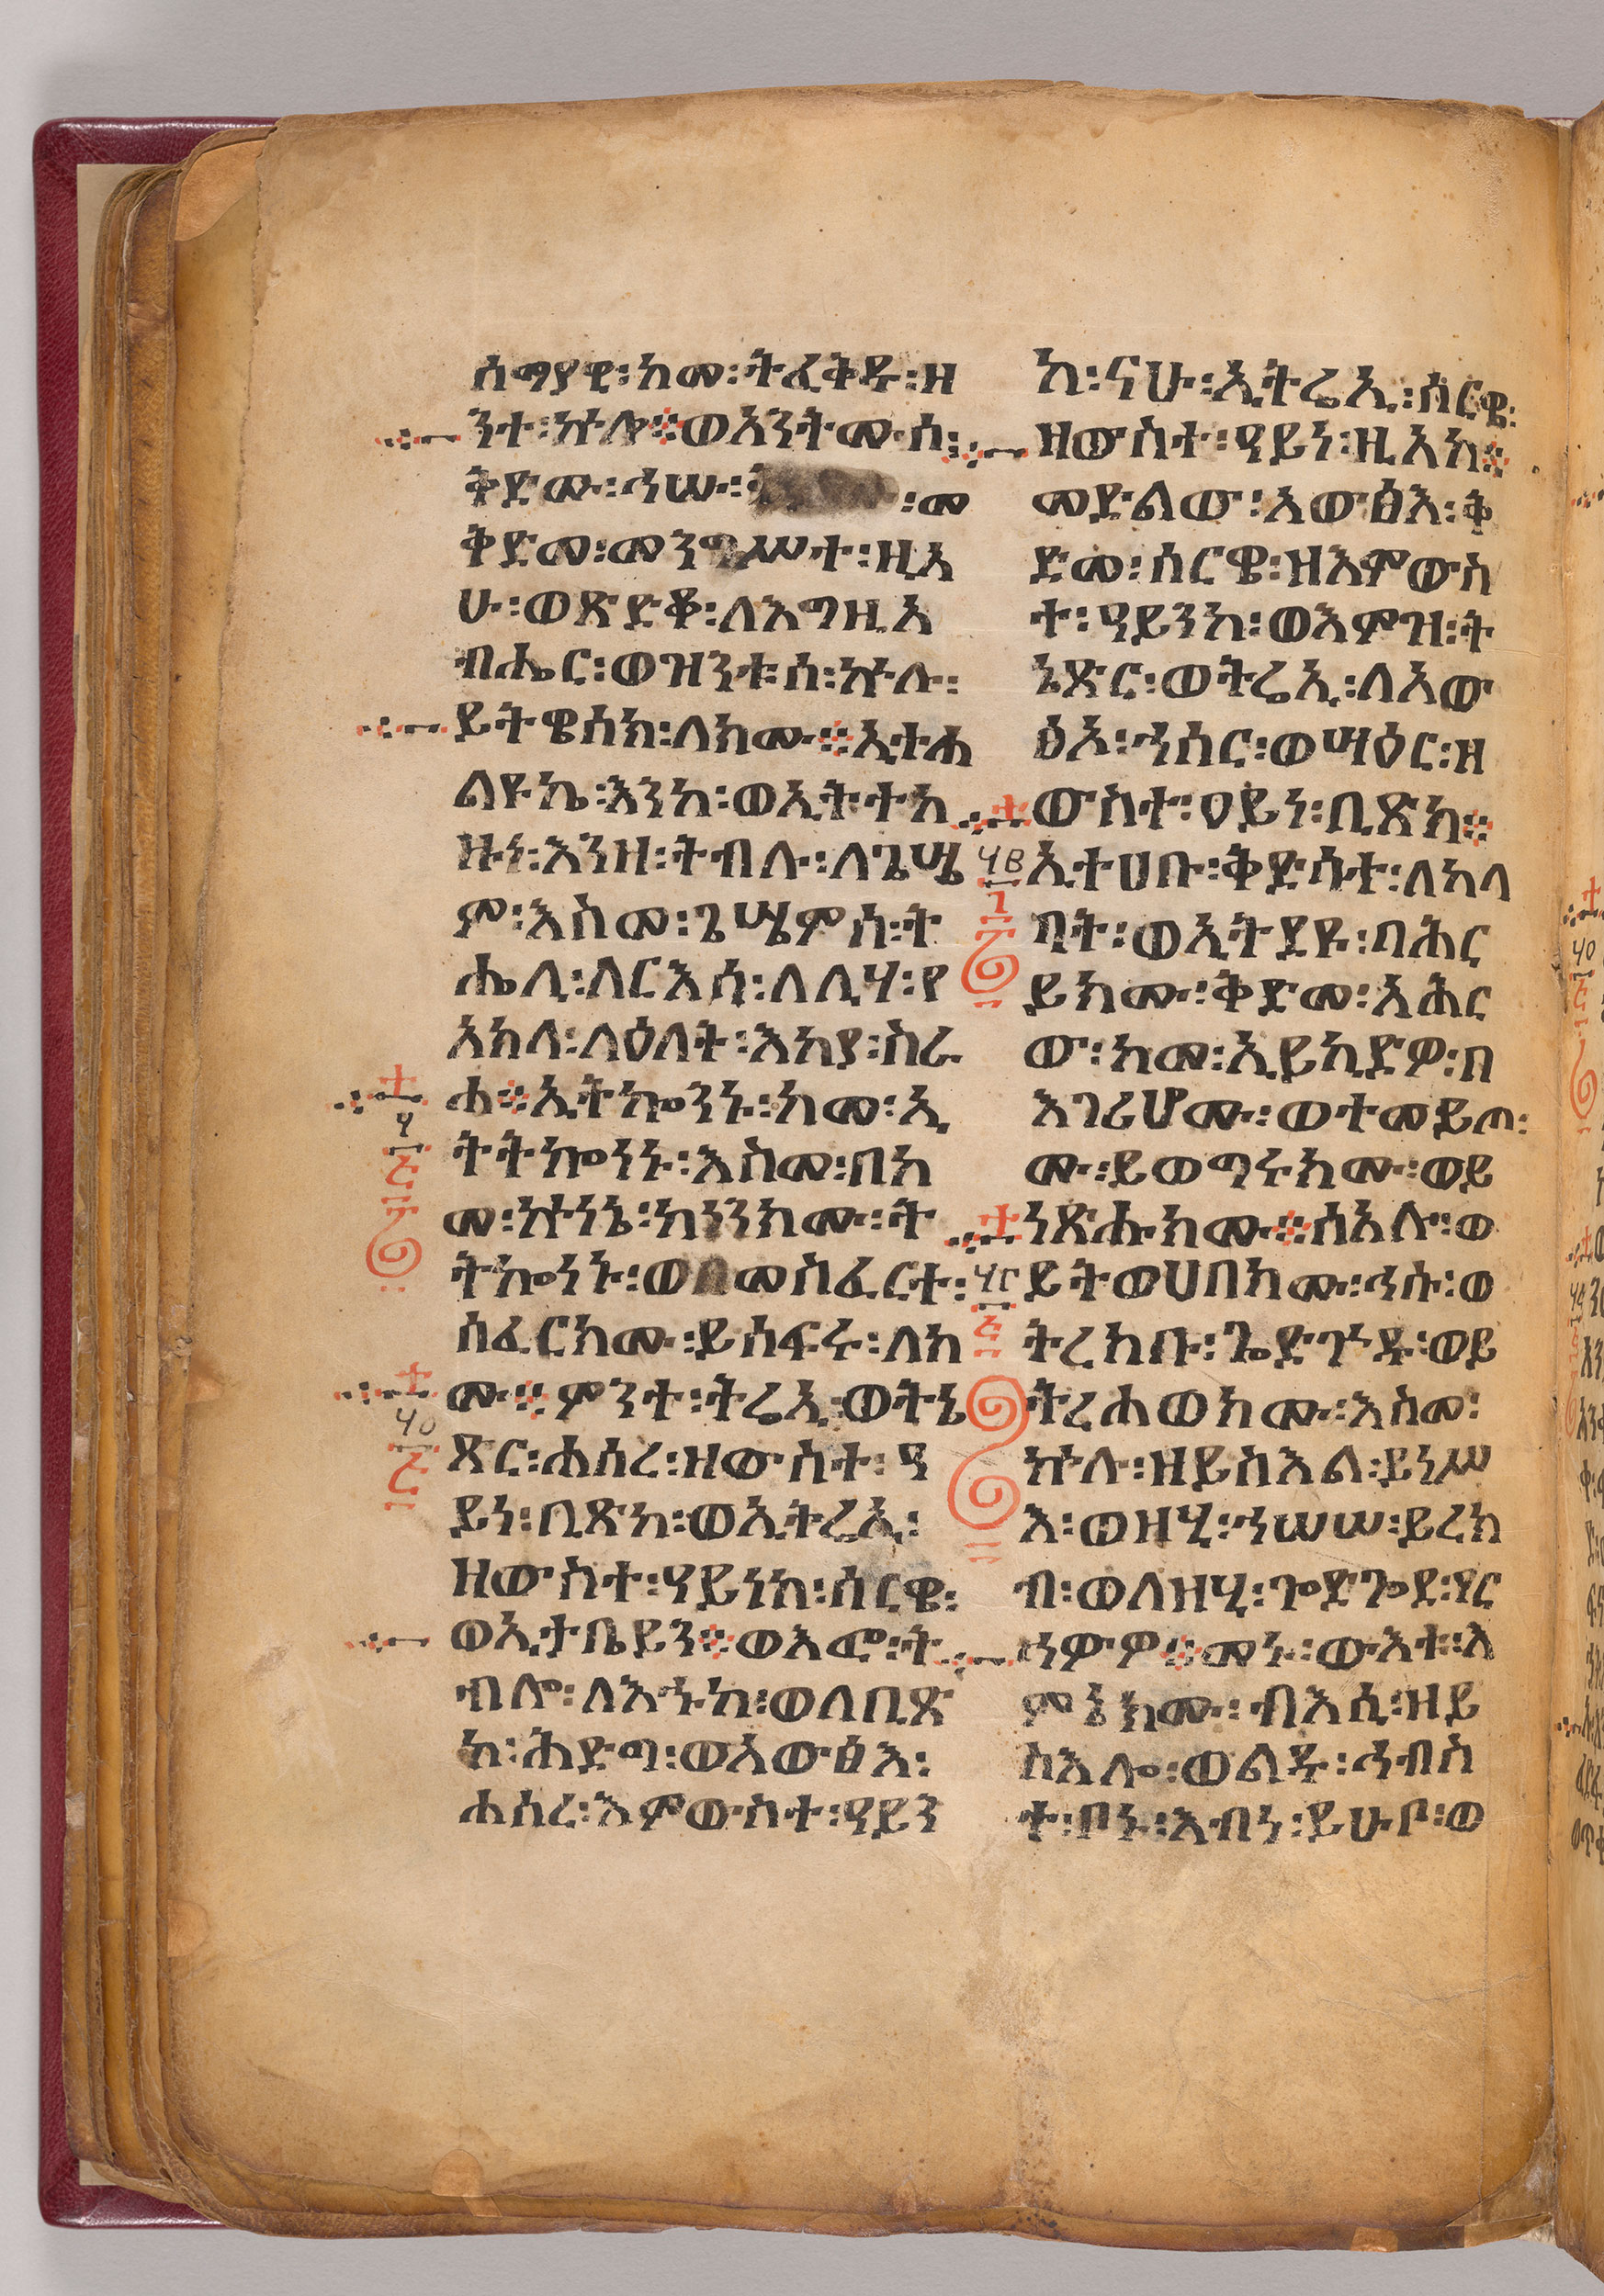 ሰማያዊ፡ከመ፡ትፈቅዱ፡ዘ
ንተ፡ኵሎ፨ወአንትሙሰ፡
ቅድሙ፡ኀሡ፡ ፡መ
ቅድመ፡መንግሥተ፡ዚአ
ሁ፡ወጽድቆ፡ለእግዚአ
ብሔር፡ወዝንቱሰ፡ኵሉ፡
ይትዌሰክ፡ለክሙ፨ኢተሐ
ልዩኬ፡እንከ፡ወኢትተከ
ዙ፡እንዘ፡ትብሉ፡ለጌሤ
ም፡እስመ፡ጌሤምሰ፡ት
ሔሊ፡ለርእሳ፡ለሊሃ፡የ
አክላ፡ለዕለት፡እከያ፡ስራ
ሐ፨ኢትኰንኑ፡ከመ፡ኢ
ትትኰነኑ፡እስመ፡በከ
መ፡ኵነኔ፡ከነንክሙ፡ት
ትኰነኑ፡ወበመስፈርተ፡
ሰፈርክሙ፡ይሰፍሩ፡ለክ
ሙ፨ምንተ፡ትሬኢ፡ወትኔ
ጽር፡ሐሰረ፡ዘውስተ፡ዓ
ይነ፡ቢጽከ፡ወኢትሬኢ፡
ዘውስተ፡ዓይነከ፡ሰርዌ፡
ወኢታቤይን፨ወእፎ፡ት
ብሎ፡ለእኁከ፡ወለቢጽ
ከ፡ሕድግ፡ወአውፅእ፡
ሐሰረ፡እምውስተ፡ዓይን
ከ፡ናሁ፡ኢትሬኢ፡ሰርዌ፡
ዘውስተ፡ዓይነ፡ዚአከ፨
መድልው፡አውፅእ፡ቅ
ድመ፡ሰርዌ፡ዘእምውስ
ተ፡ዓይንከ፡ወእምዝ፡ት
ኔጽር፡ወትሬኢ፡ለአው
ፅኦ፡ኀሰር፡ወሣዕር፡ዘ
ውስተ፡ዐይነ፡ቢጽከ፨
፵፪ ኢተሀቡ፡ቅድሳተ፡ለከላ
ባት፡ወኢትደዩ፡ባሕር
ይክሙ፡ቅድመ፡አሕር
ው፡ከመ፡ኢይኪድዎ፡በ
እገሪሆሙ፡ወተመይጦ፡
ሙ፡ይወግሩክሙ፡ወይ
ነጽሑክሙ፨ሰአሉ፡ወ
፵፫ ይትወሀበክሙ፡ኀሡ፡ወ
ትረክቡ፡ጐድጕዱ፡ወይ
ትረሐወክሙ፡እስመ፡
ኵሉ፡ዘይስእል፡ይነሥ
እ፡ወዘሂ፡ኀሠሠ፡ይረክ
ብ፡ወለዝሂ፡ጐድጐደ፡የር
ኅዎዎ፨መኑ፡ውእቱ፡እ
ምኔክሙ፡ብእሲ፡ዘይ
ስእሎ፡ወልዱ፡ኅብስ
ተ፡ቦኑ፡እብነ፡ይሁቦ፡ወ